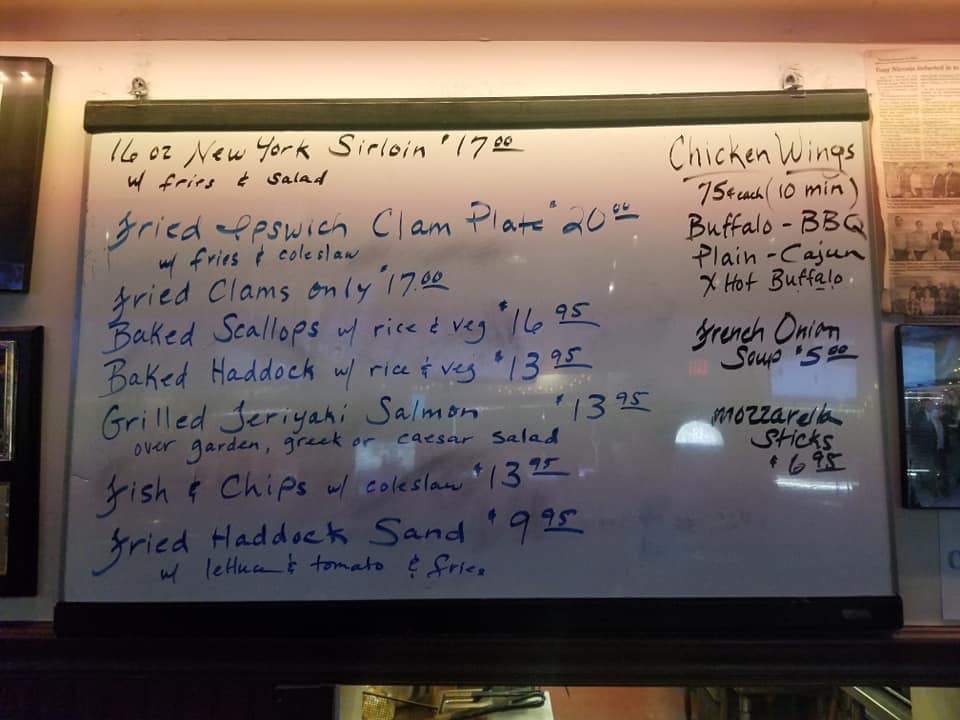 16 oz New York Sirloin $17.00
w/ fries & salad
Fried Ipswich Clam Plate $20.00
w/ fries & coleslaw
Fried Clams only $17.00
Baked Scallops w/ rice & veg $16.95
Baked Haddock w/ rice & veg $13.95
Grilled Teriyaki Salmon $13.95
over garden, greek or caesar salad
Fish & Chips w/ coleslaw $13.95
Fried Haddock Sand $9.95
w/ lettuce & tomato & fries
Chicken Wings
75¢ each (10 min)
Buffalo - BBQ
Plain - Cajun
X Hot Buffalo
French Onion
Soup $5.00
mozzarella
Sticks
$6.95